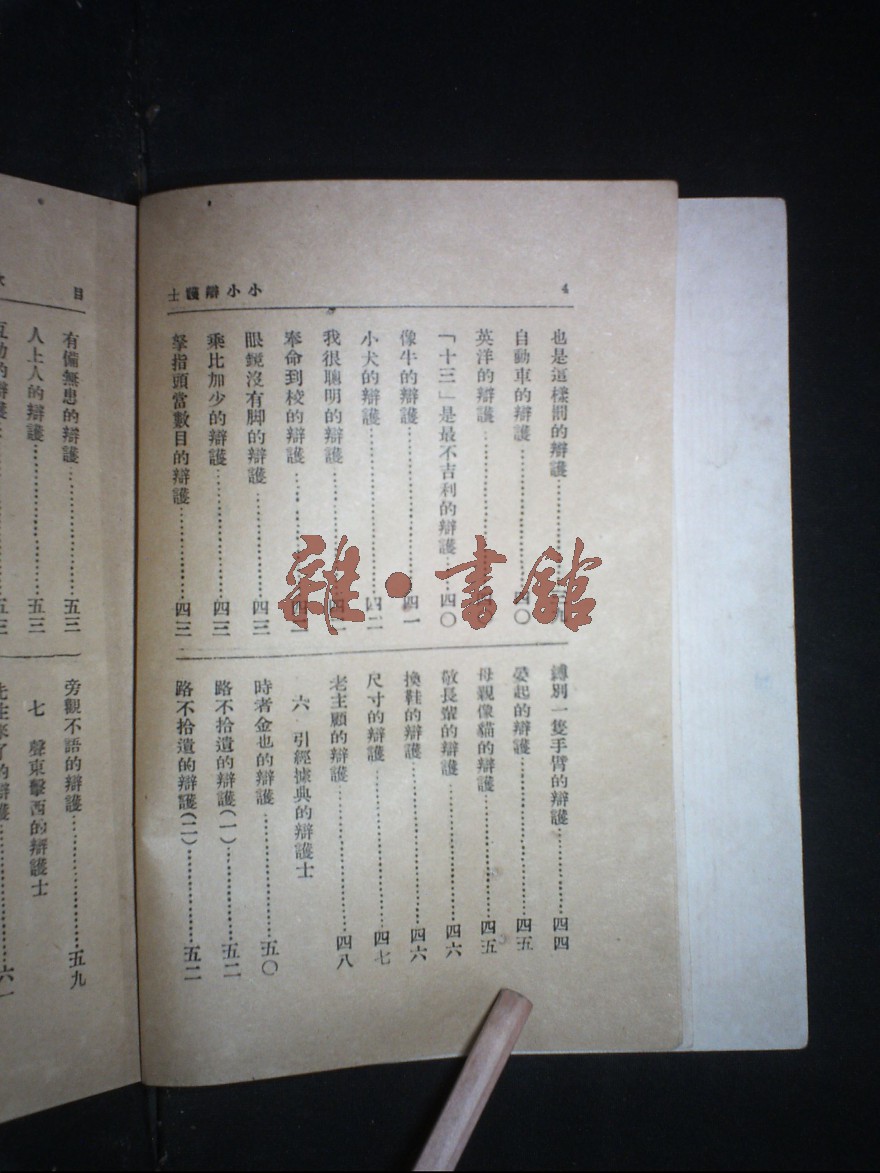 小小辯護士 4
也是這樣罰的辯護…………三九
自動車的辯護…………四〇
英洋的辯護…………
「十三」是最不吉利的辯護…四〇
像牛的辯護…………四一
小犬的辯護…………四二
我很聰明的辯護…………四二
奉命到校的辯護…………四二
眼鏡沒有脚的辯護…………四三
乘比加少的辯護…………四三
拏指頭當數目的辯護…………四三
別一隻手臂的辯護…………四四
晏起的辯護…………四五
母親像貓的辯護…………四五
敬長輩的辯護…………四六
換鞋的辯護…………四六
尺寸的辯護…………四七
老主顧的辯護…………四八
六 引經據典的辯護士
時者金也的辯護…………五〇
路不拾遺的辯護(一)…………五二
路不拾遺的辯護(二)…………五二
目
有備無患的辯護…………五三
人上人的辯護…………五三
互助的辯護…………五三
旁觀不語的辯護…………五九
七 聲東擊西的辯護士
先生來了的辯護…………六一
雜·書館